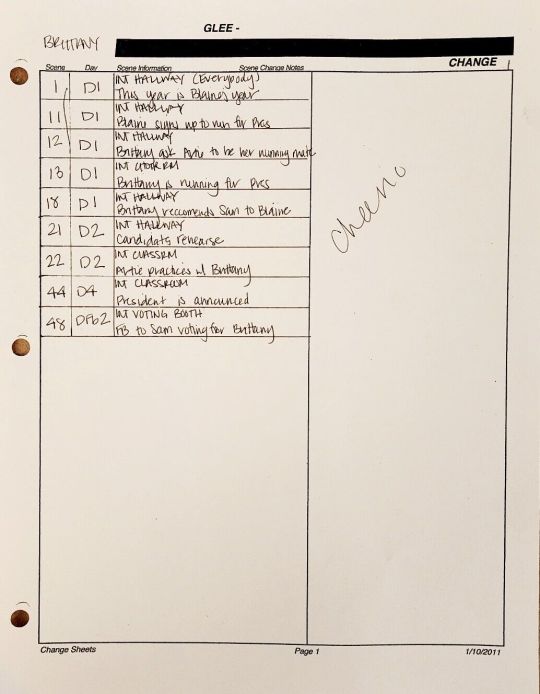 GLEE -
BRITTANY
CHANGE 1
Scene Day Scene Information Scene Change Notes
1 D1 INT HALLWAY (Everybody)
This year is Blaine's year
11 D1 INT HALLWAY
Blaine signs up to run for Pres
12 D1 INT HALLWAY
Brittany ask Artie to be her running mate
13 D1 INT CHOIR RM
Brittany is running for Pres
18 D1 INT HALLWAY
Brittany reccomends Sam to Blaine
21 D2 INT HALLWAY
Candidats rehearse
22 D2 INT CLASSRM
Artie practices w/ Brittany
44 D4 INT CLASSROOM
President is announced
48 DFb2 INT VOTING BOOTH
FB to Sam voting for Brittany
Cheerio
Change Sheets Page 1 1/10/2011